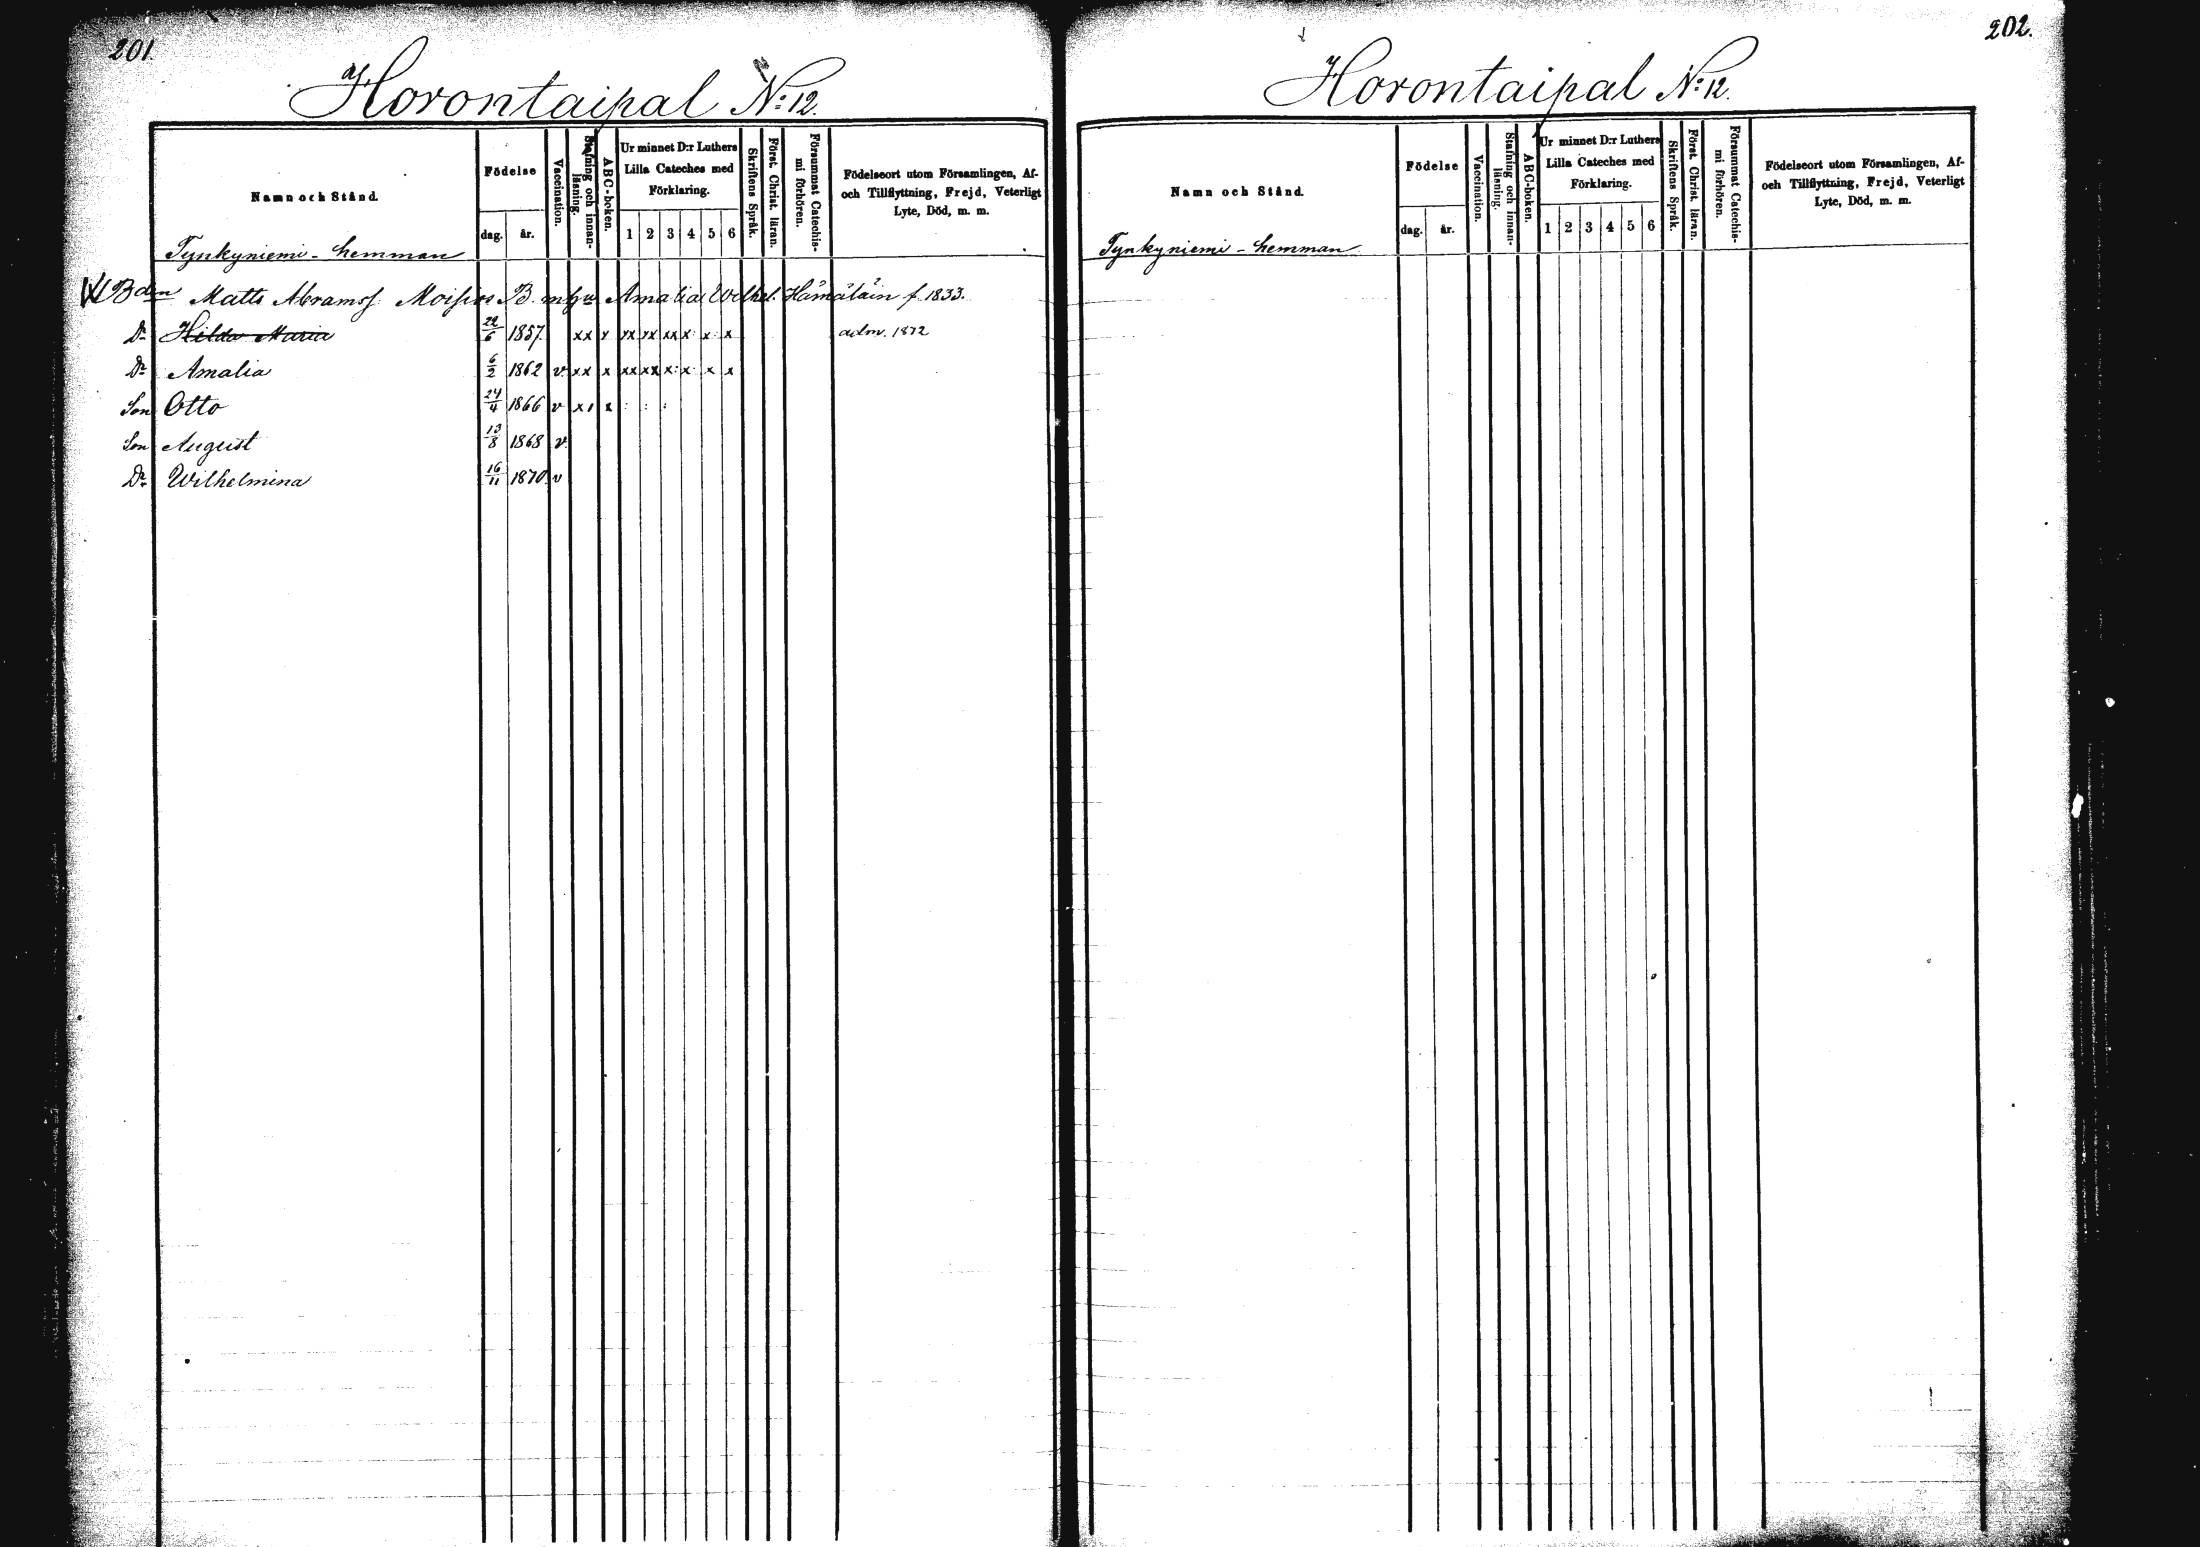 201.
Horontaipal N:o 12.
Namn och Stånd.
Födelse
dag.
år.
Vaccination.
Stafning och innan-läsning.
ABC-boken.
Ur minnet D:r Luthers
Lilla Cateches med
Förklaring.
1 2 3 4 5 6
Skriftens Språk.
Först. Christ. läran.
Försummat Catechis-
mi förhören.
Födelseort utom Församlingen, Af-
och Tillflyttning, Frejd, Veterligt
Lyte, Död, m. m.
Tynkyniemi - hemman
Bden Matts Abramsf. Amalia Wilhel. Hämäläin f. 1833.
Dr Hilda Maria 22/6 1857. xx x xx xx xx x x x adm. 1872
Dr Amalia 6/2 1862 v xx x xx xx x: x x x
Son Otto 24/4 1866 v x x : : :
Son August 13/8 1868 v.
Dr Wilhelmina 16/11 1870 v
202.
Horontaipal N:o 12.
Namn och Stånd.
Födelse
dag.
år.
Vaccination.
Stafning och innan-
läsning.
ABC-boken.
Ur minnet D:r Luthers
Lilla Cateches med
Förklaring.
1 2 3 4 5 6
Skriftens Språk.
Först. Christ. läran.
Försummat Catechis-
mi förhören.
Födelseort utom Församlingen, Af-
och Tillflyttning, Frejd, Veterligt
Lyte, Död, m. m.
Tynkyniemi - hemman